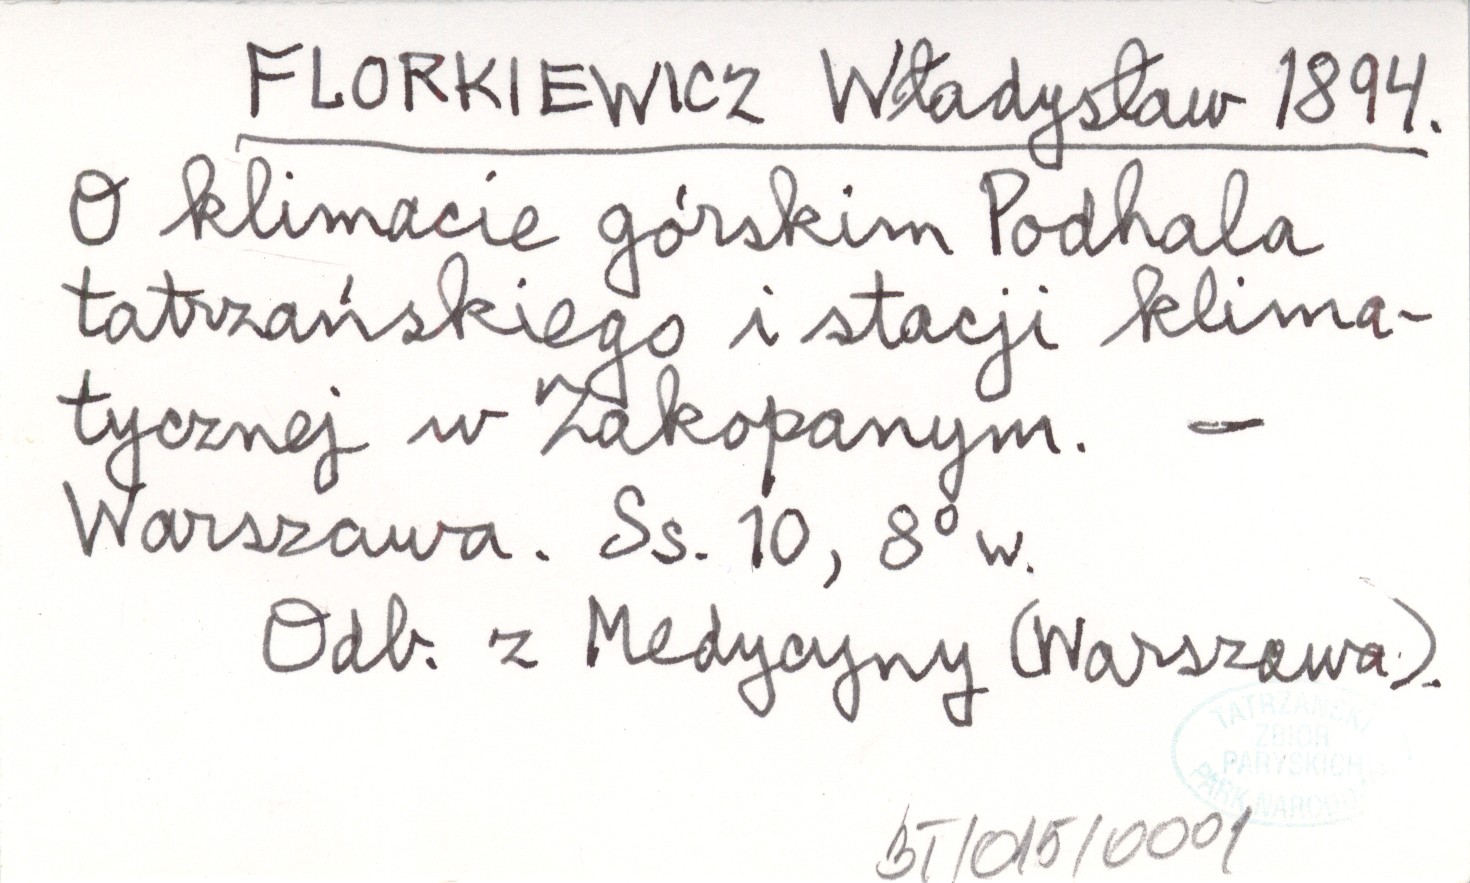 FLORKIEWICZ Władysław 1894.
O klimacie górskim Podhala
tatrzańskiego i stacji klima-
tycznej w Zakopanym. —
Warszawa. Ss. 10, 8° w.
Odb. z Medycyny (Warszawa).
TATRZAŃSKI
ZBIÓR
PARYSKICH
PARK NARODOWY
BT/015/0001